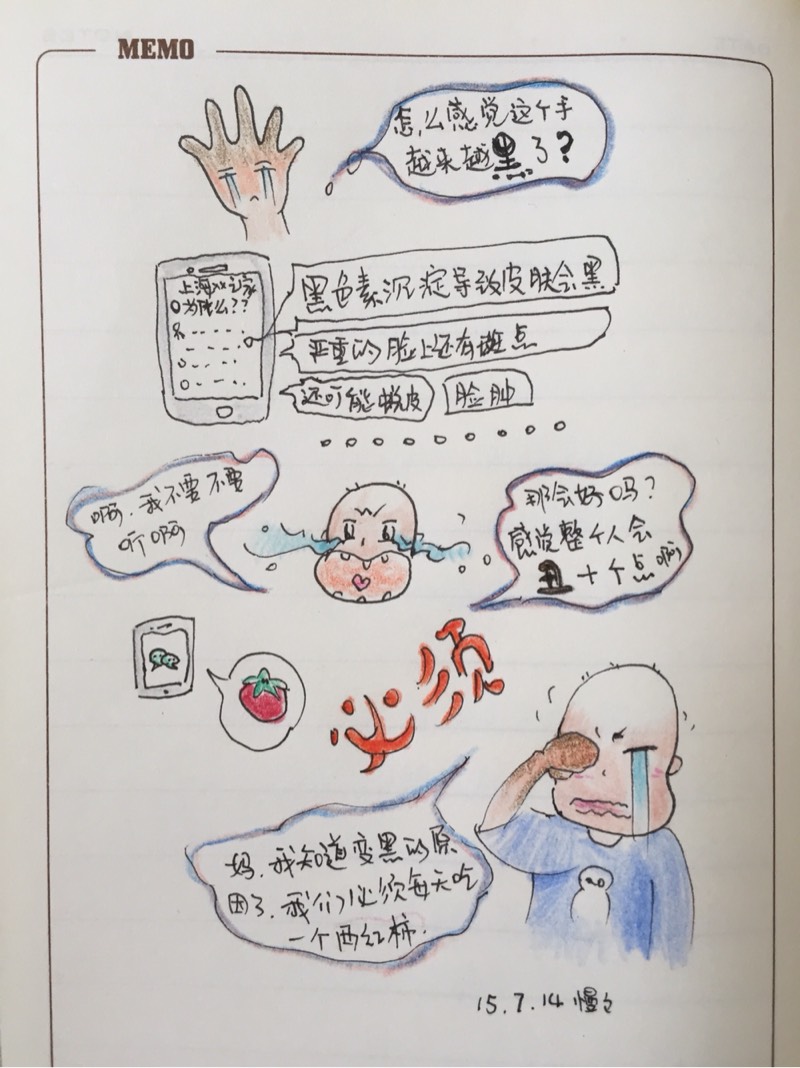 MEMO
怎么感觉这个手
越来越黑了?
上海xx之家
为什么??
黑色素沉淀导致皮肤会黑
严重的脸上还有斑点
还可能蜕皮
脸肿
啊.我不要不要
听啊
那会好吗?
感觉整个人会
丑十个点啊
必须
妈.我知道变黑的原
因了.我们必须每天吃
一个西红柿.
15.7.14 慢々